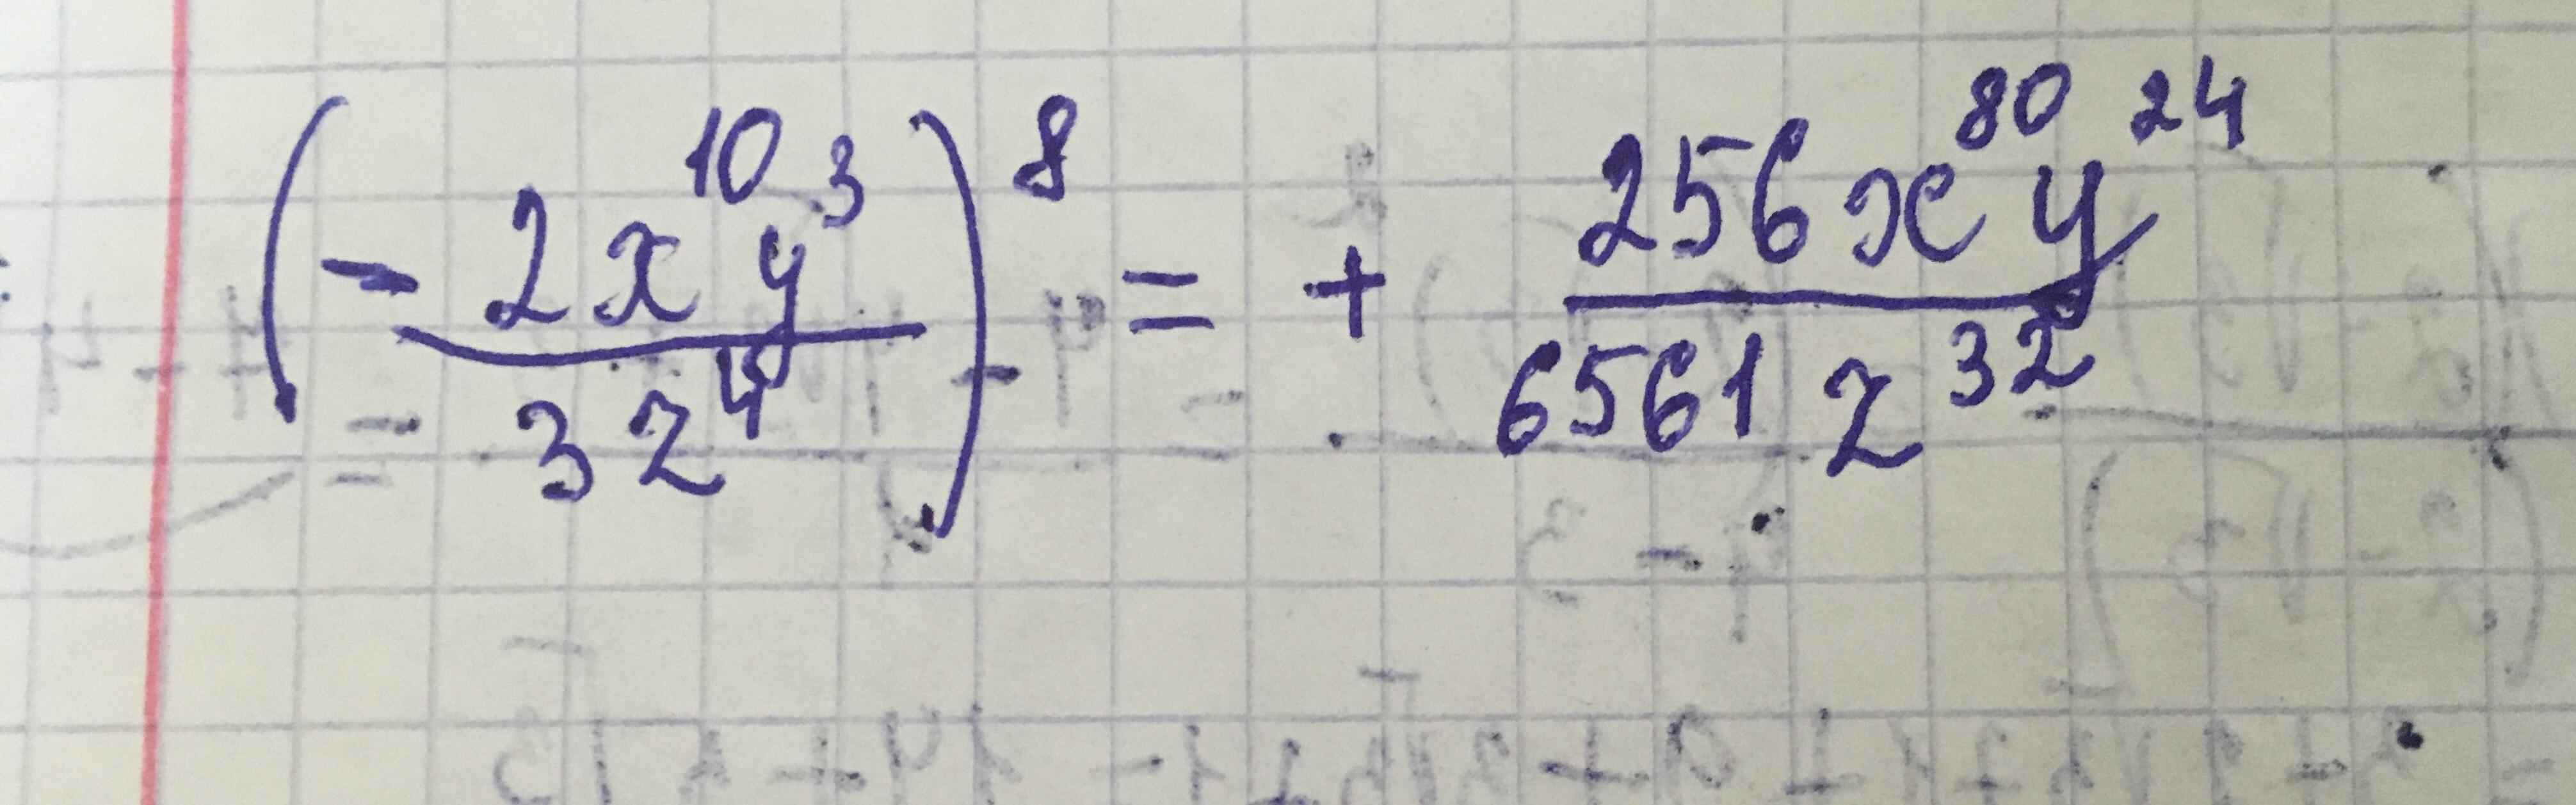 (- 2x¹⁰y³ / 3z⁴)⁸ = + 256x⁸⁰y²⁴ / 6561z³²